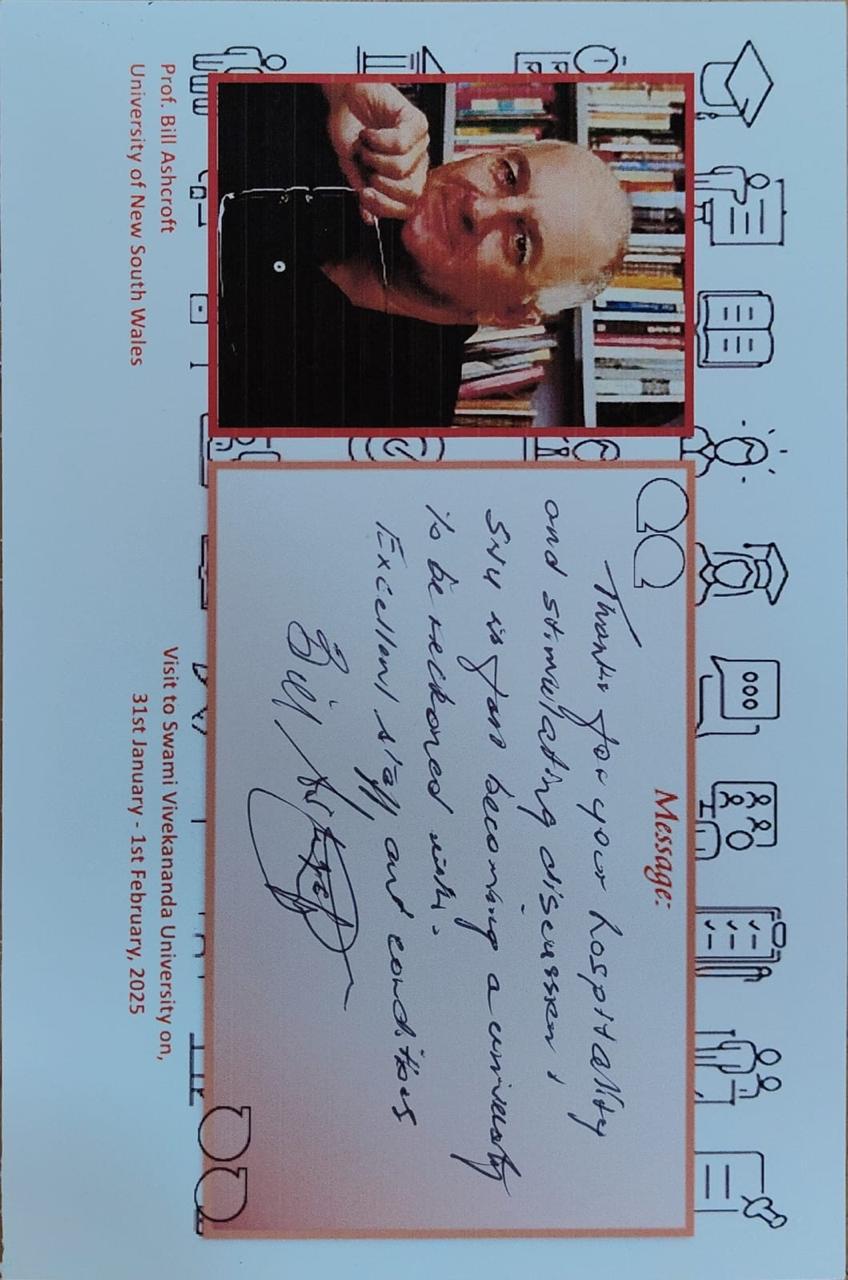 Message:
Thanks for your hospitality
and stimulating discussion!
SVU is fast becoming a university
to be reckoned with.
Excellent staff and conditions
Bill Ashcroft
Prof. Bill Ashcroft
University of New South Wales
Visit to Swami Vivekananda University on,
31st January - 1st February, 2025